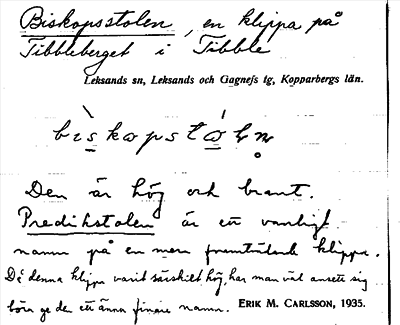 Biskopsstolen, en klippa på
Tibbleberget i Tibble
Leksands sn, Leksands och Gagnefs tg, Kopparbergs län.
biskopstọln̥
Den är hög och brant.
Predikstolen är ett vanligt
namn på en mera framträdande klippa.
Då denna klippa varit särskilt hög, har man väl ansett sig
böra ge den ett ännu finare namn. ERIK M. CARLSSON, 1935.